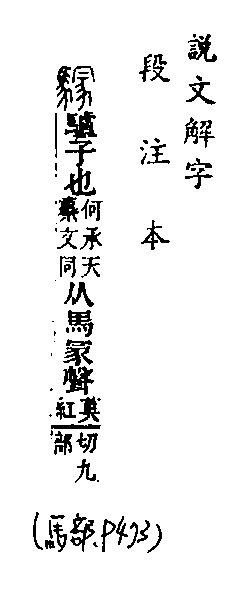 說文解字
段注本
驢子也何承天纂文同从馬冡聲莫紅切九部
(馬部.P473)